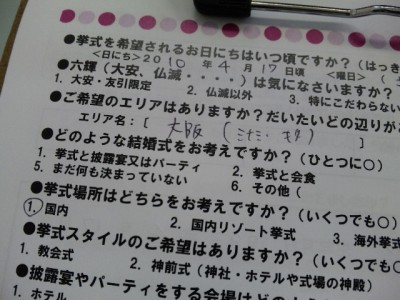 ●挙式を希望されるお日にちはいつ頃ですか?(はっき
<日にち>2010年 4月17日頃 <曜日>(
●六輝(大安、仏滅・・・・)は気になさいますか?
1. 大安・友引限定 2. 仏滅以外 3. 特にこだわらない
●ご希望のエリアはありますか?だいたいどの辺りが
エリア名:[ 大阪(ミナミ・キタ) ]
●どのような結婚式をお考えですか?(ひとつに○)
1. 挙式と披露宴又はパーティ 2. 挙式と会食
5. まだ何も決まっていない 6. その他(
●挙式場所はどちらをお考えですか?(いくつでも○)
1. 国内 2. 国内リゾート挙式 3. 海外挙式
●挙式スタイルのご希望はありますか?(いくつでも
1. 教会式 2. 神前式(神社・ホテルや式場の神殿)
●披露宴やパーティをする会場はどの
1. ホテル